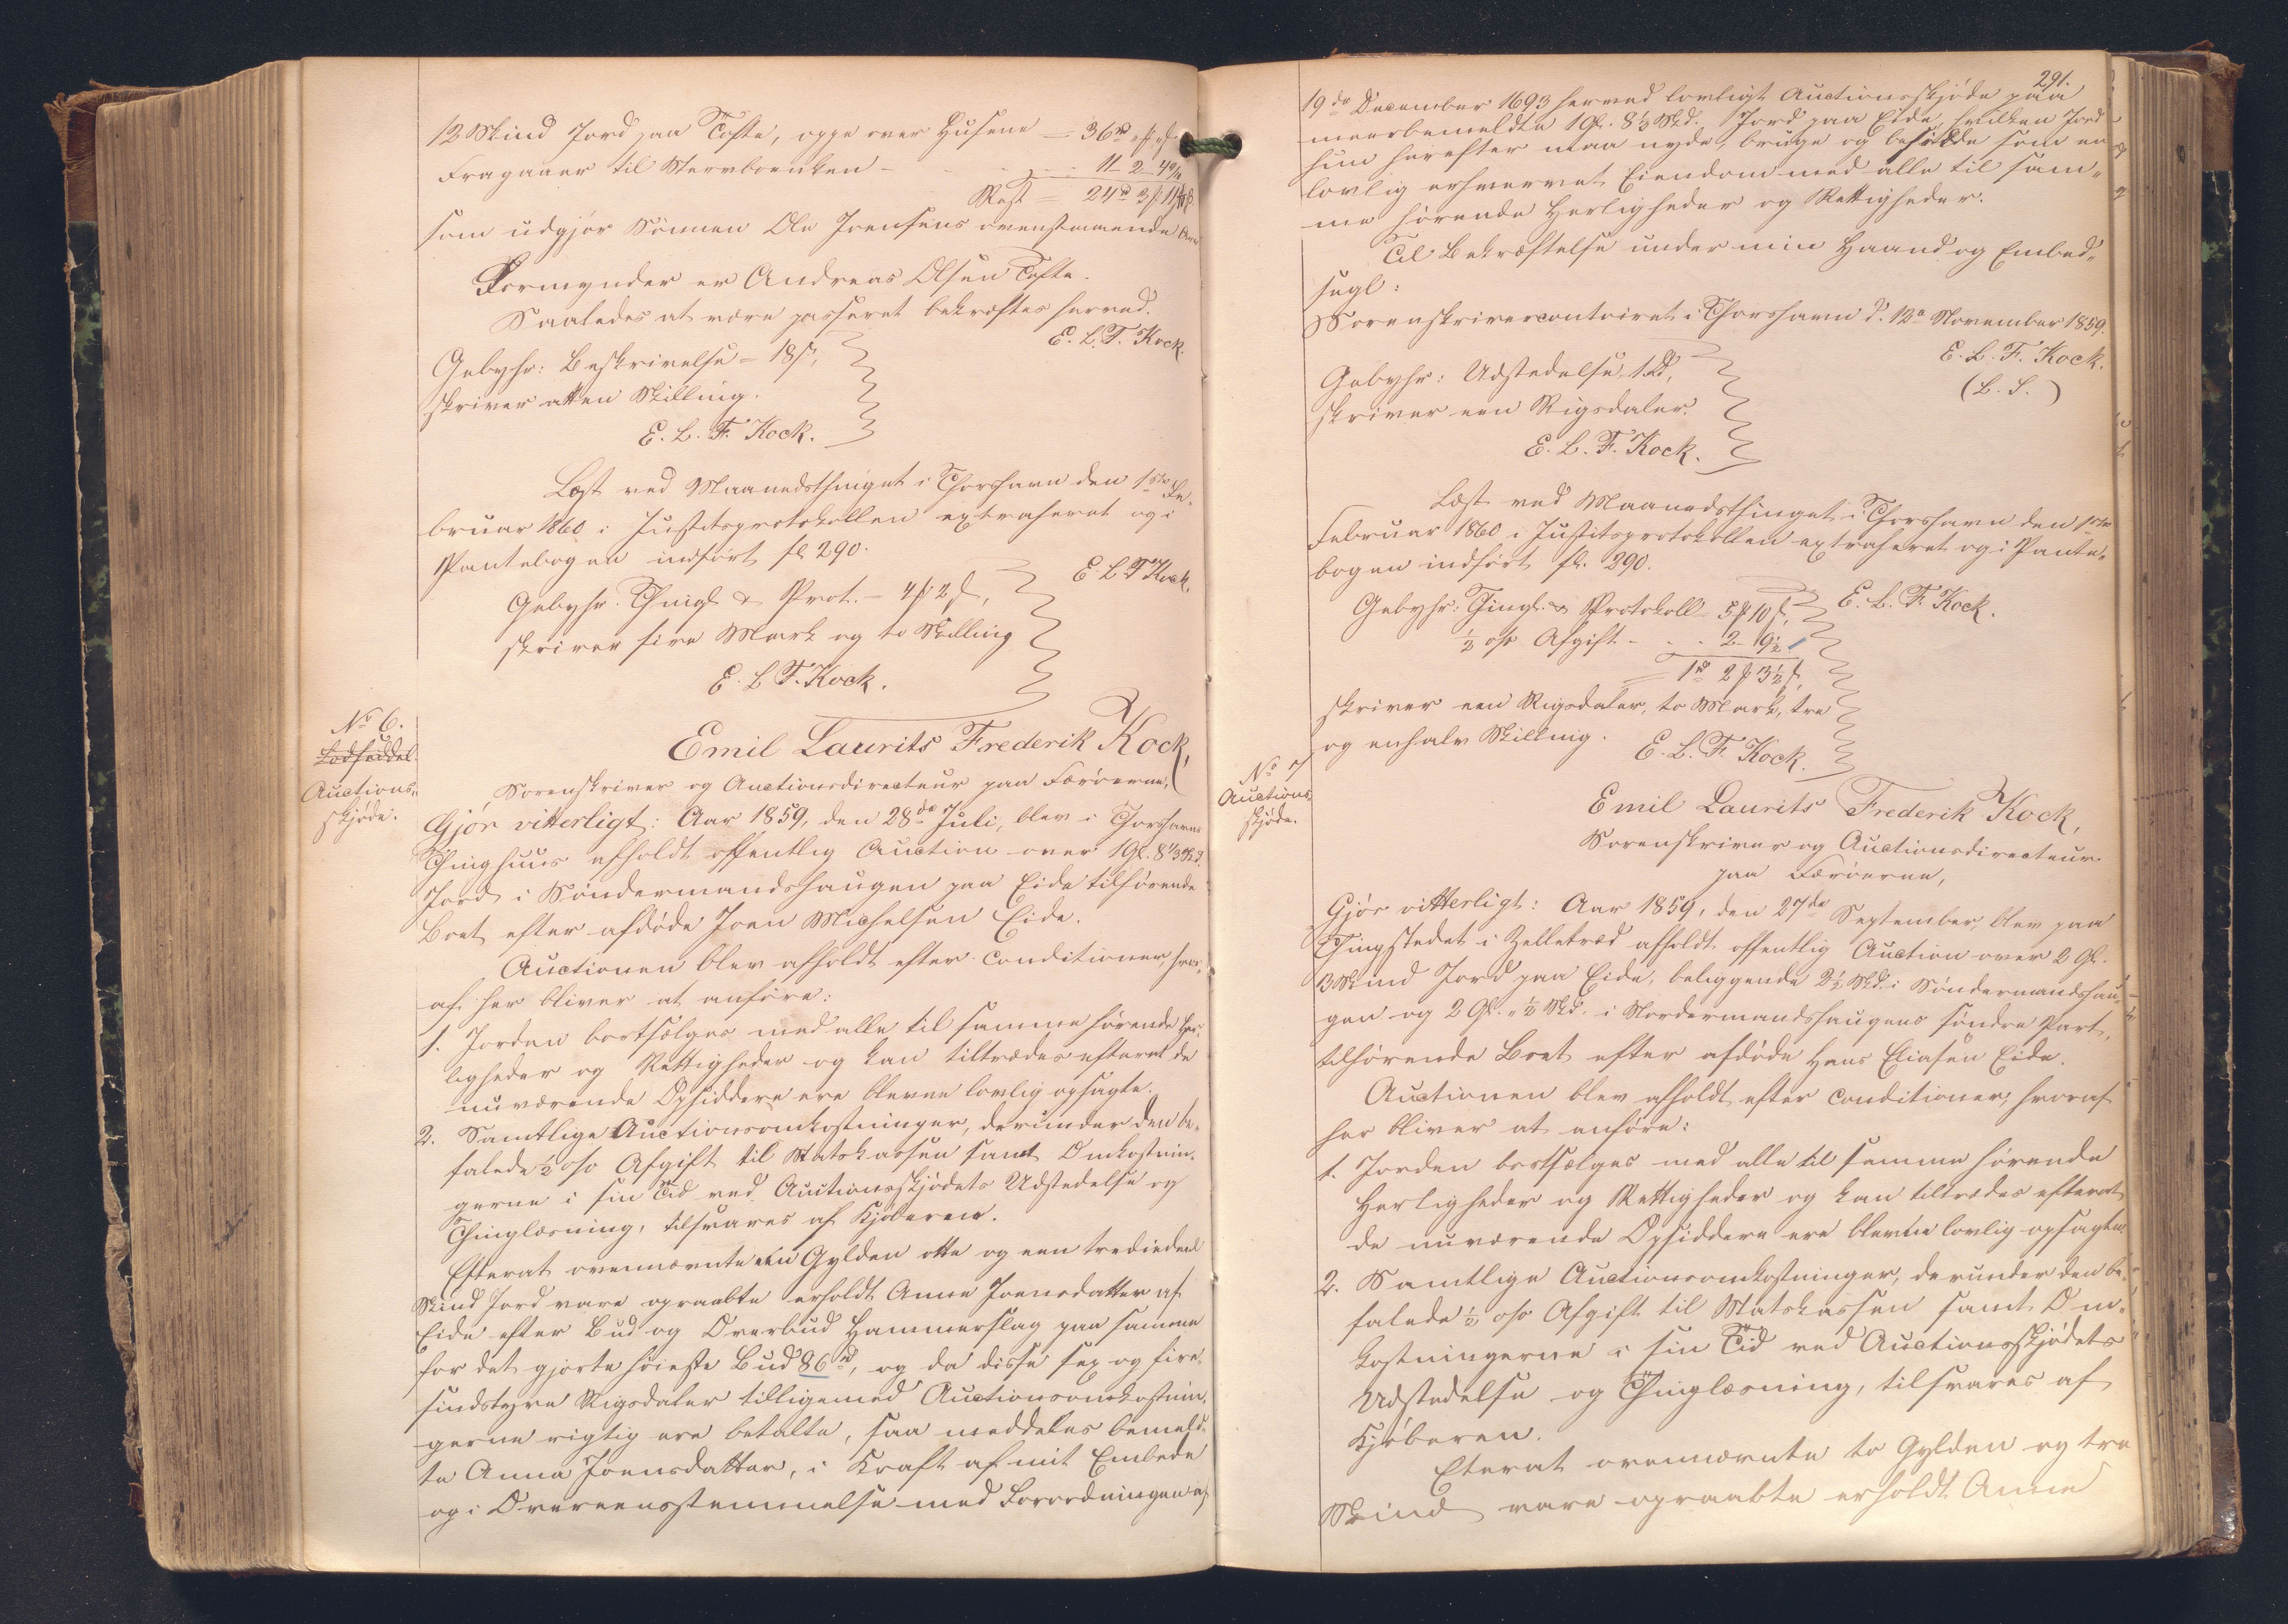 12 Skind Jord paa Tofte, oppe over Husene = 36 rd " " "
Fragaaer til Stervboenken - 11 - 2 - 4 9/10
Rest = 24 rd 3 11 1/10
som udgjør Sønnen Ole Joensens ovenstaaende Arv
Formynder er Andreas Olsen Tofte.
Saaledes at være passeret bekræftes herved.
E. L. F. Kock.
Gebyhr: Beskrivelse = 18 s,
skriver atten Skilling.
E. L. F. Kock.
Læst ved Maanedsthinget i Thorshavn den 1ste Fe-
bruar 1860 i Justitsprotokollen extraheret og i
Pantebogen indført fl 290.
E. L. F. Kock.
Gebyhr. Thingl & Prot. - 4 # 2 s,
skriver fire Mark og to Skilling
E. L. F. Kock.
No 6.
Lodseddel.
Auctions-
skjøde.
Emil Laurits Frederik Kock,
Sorenskriver og Auctionsdirecteur paa Færøerne,
Gjør vitterligt: Aar 1859, den 28de Juli, blev i Thorshavns
Thinghuus afholdt offentlig Auction over 1 Gl. 8 1/3 Skd.
Jord i Søndermandshaugen paa Eide tilhørende
Boet efter afdøde Joen Michelsen Eide.
Auctionen blev afholdt efter Conditioner, hvor-
af her bliver at anføre:
1. Jorden bortsælges med alle til samme hørende Her-
ligheder og Rettigheder og kan tiltrædes efterat de
nuværende Opsiddere ere blevne lovlig opsagte.
2. Samtlige Auctionsomkostninger, derunder den be-
falede 1/2 o/o Afgift til Statskassen samt Omkostnin-
gerne i sin Tid ved Auctionsskjødets Udstedelse og
Thinglæsning, tilsvares af Kjøberen.
Efterat ovennævnte een Gylden otte og een trediedeel
Skind Jord vare opraabte erholdt Anne Joensdatter af
Eide efter Bud og Overbud Hammerslag paa samme
for det gjorte høieste Bud 86 rd, og da disse sex og fire-
sindstyve Rigsdaler tilligemed Auctionsomkostnin-
gerne rigtig ere betalte, saa meddeles bemeld-
te Anna Joensdatter, i Kraft af mit Embede
og i Overeensstemmelse med Forordningen af
291.
19de December 1693 herved lovligt Auctionsskjøde paa
meerbemeldte 1 Gl. 8 1/3 Skd. Jord paa Eide, hvilken Jord
hun herefter maa nyde, bruge og besidde som en
lovlig erhvervet Eiendom med alle til sam-
me hørende Herligheder og Rettigheder.
Til Bekræftelse under min Haand og Embed-
segl:
Sorenskrivercontoiret i Thorshavn d. 12te November 1859.
E. L. F. Kock.
(L. S.)
Gebyhr: Udstedelse 1 Rd,
skriver een Rigsdaler.
E. L. F. Kock.
Læst ved Maanedsthinget i Thorshavn den 1ste
Februar 1860 i Justitsprotokollen extraheret og i Pante-
bogen indført fl. 290.
E. L. F. Kock.
Gebyhr: Thingl. & Protokoll 5 # 10 s,
1/2 o/o Afgift - - - 2 - 9 1/2
= 1 rd 2 # 3 1/2 s,
skriver een Rigsdaler, to Mark, tre
og enhalv Skilling.
E. L. F. Kock.
No 7
Auctions
skjøde.
Emil Laurits Frederik Kock,
Sorenskriver og Auctionsdirecteur
paa Færøerne,
Gjør vitterligt: Aar 1859, den 27de September, blev paa
Thingstedet i Zelletræd afholdt offentlig Auction over 2 Gl.
3 Skind Jord paa Eide, beliggende 2 1/2 Skd. i Søndermandshau-
gen og 2 Gl. " 1/2 Skd. i Nordermandshaugens søndre Part,
tilhørende Boet efter afdøde Hans Eliasen Eide.
Auctionen blev afholdt efter Conditioner, hvoraf
her bliver at anføre:
1. Jorden bortsælges med alle til samme hørende
Herligheder og Rettigheder og kan tiltrædes efterat
de nuværende Opsiddere ere blevne lovlig opsagte.
2. Samtlige Auctionsomkostninger, derunder den be-
falede 1/2 o/o Afgift til Statskassen samt Om-
kostningerne i sin Tid ved Auctionsskjødets
Udstedelse og Thinglæsning, tilsvares af
Kjøberen.
Eterat ovennævnte to Gylden og tre
Skind vare opraabte erholdt Anne